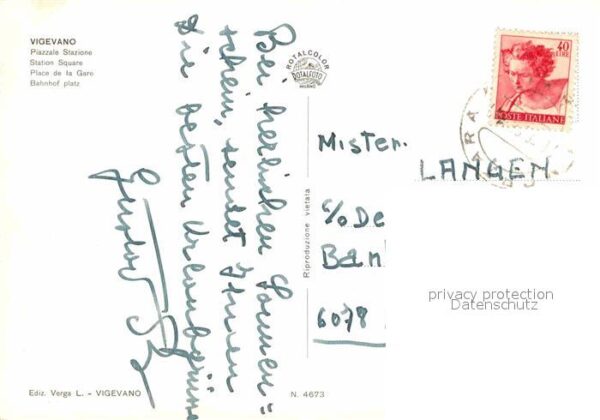 VIGEVANO
Piazzale Stazione
Station Square
Place de la Gare
Bahnhof platz
ROTALCOLOR
ROTALFOTO
MILANO
40
LIRE
POSTE ITALIANE
Bei herrlichem Sonnen=
schein, sendet Ihnen
die besten Urlaubsgrüsse
Gustav
Riproduzione vietata
Mister.
LANGEN
c/o De
Ban
6078
privacy protection
Datenschutz
Ediz. Verga L. - VIGEVANO
N. 4673